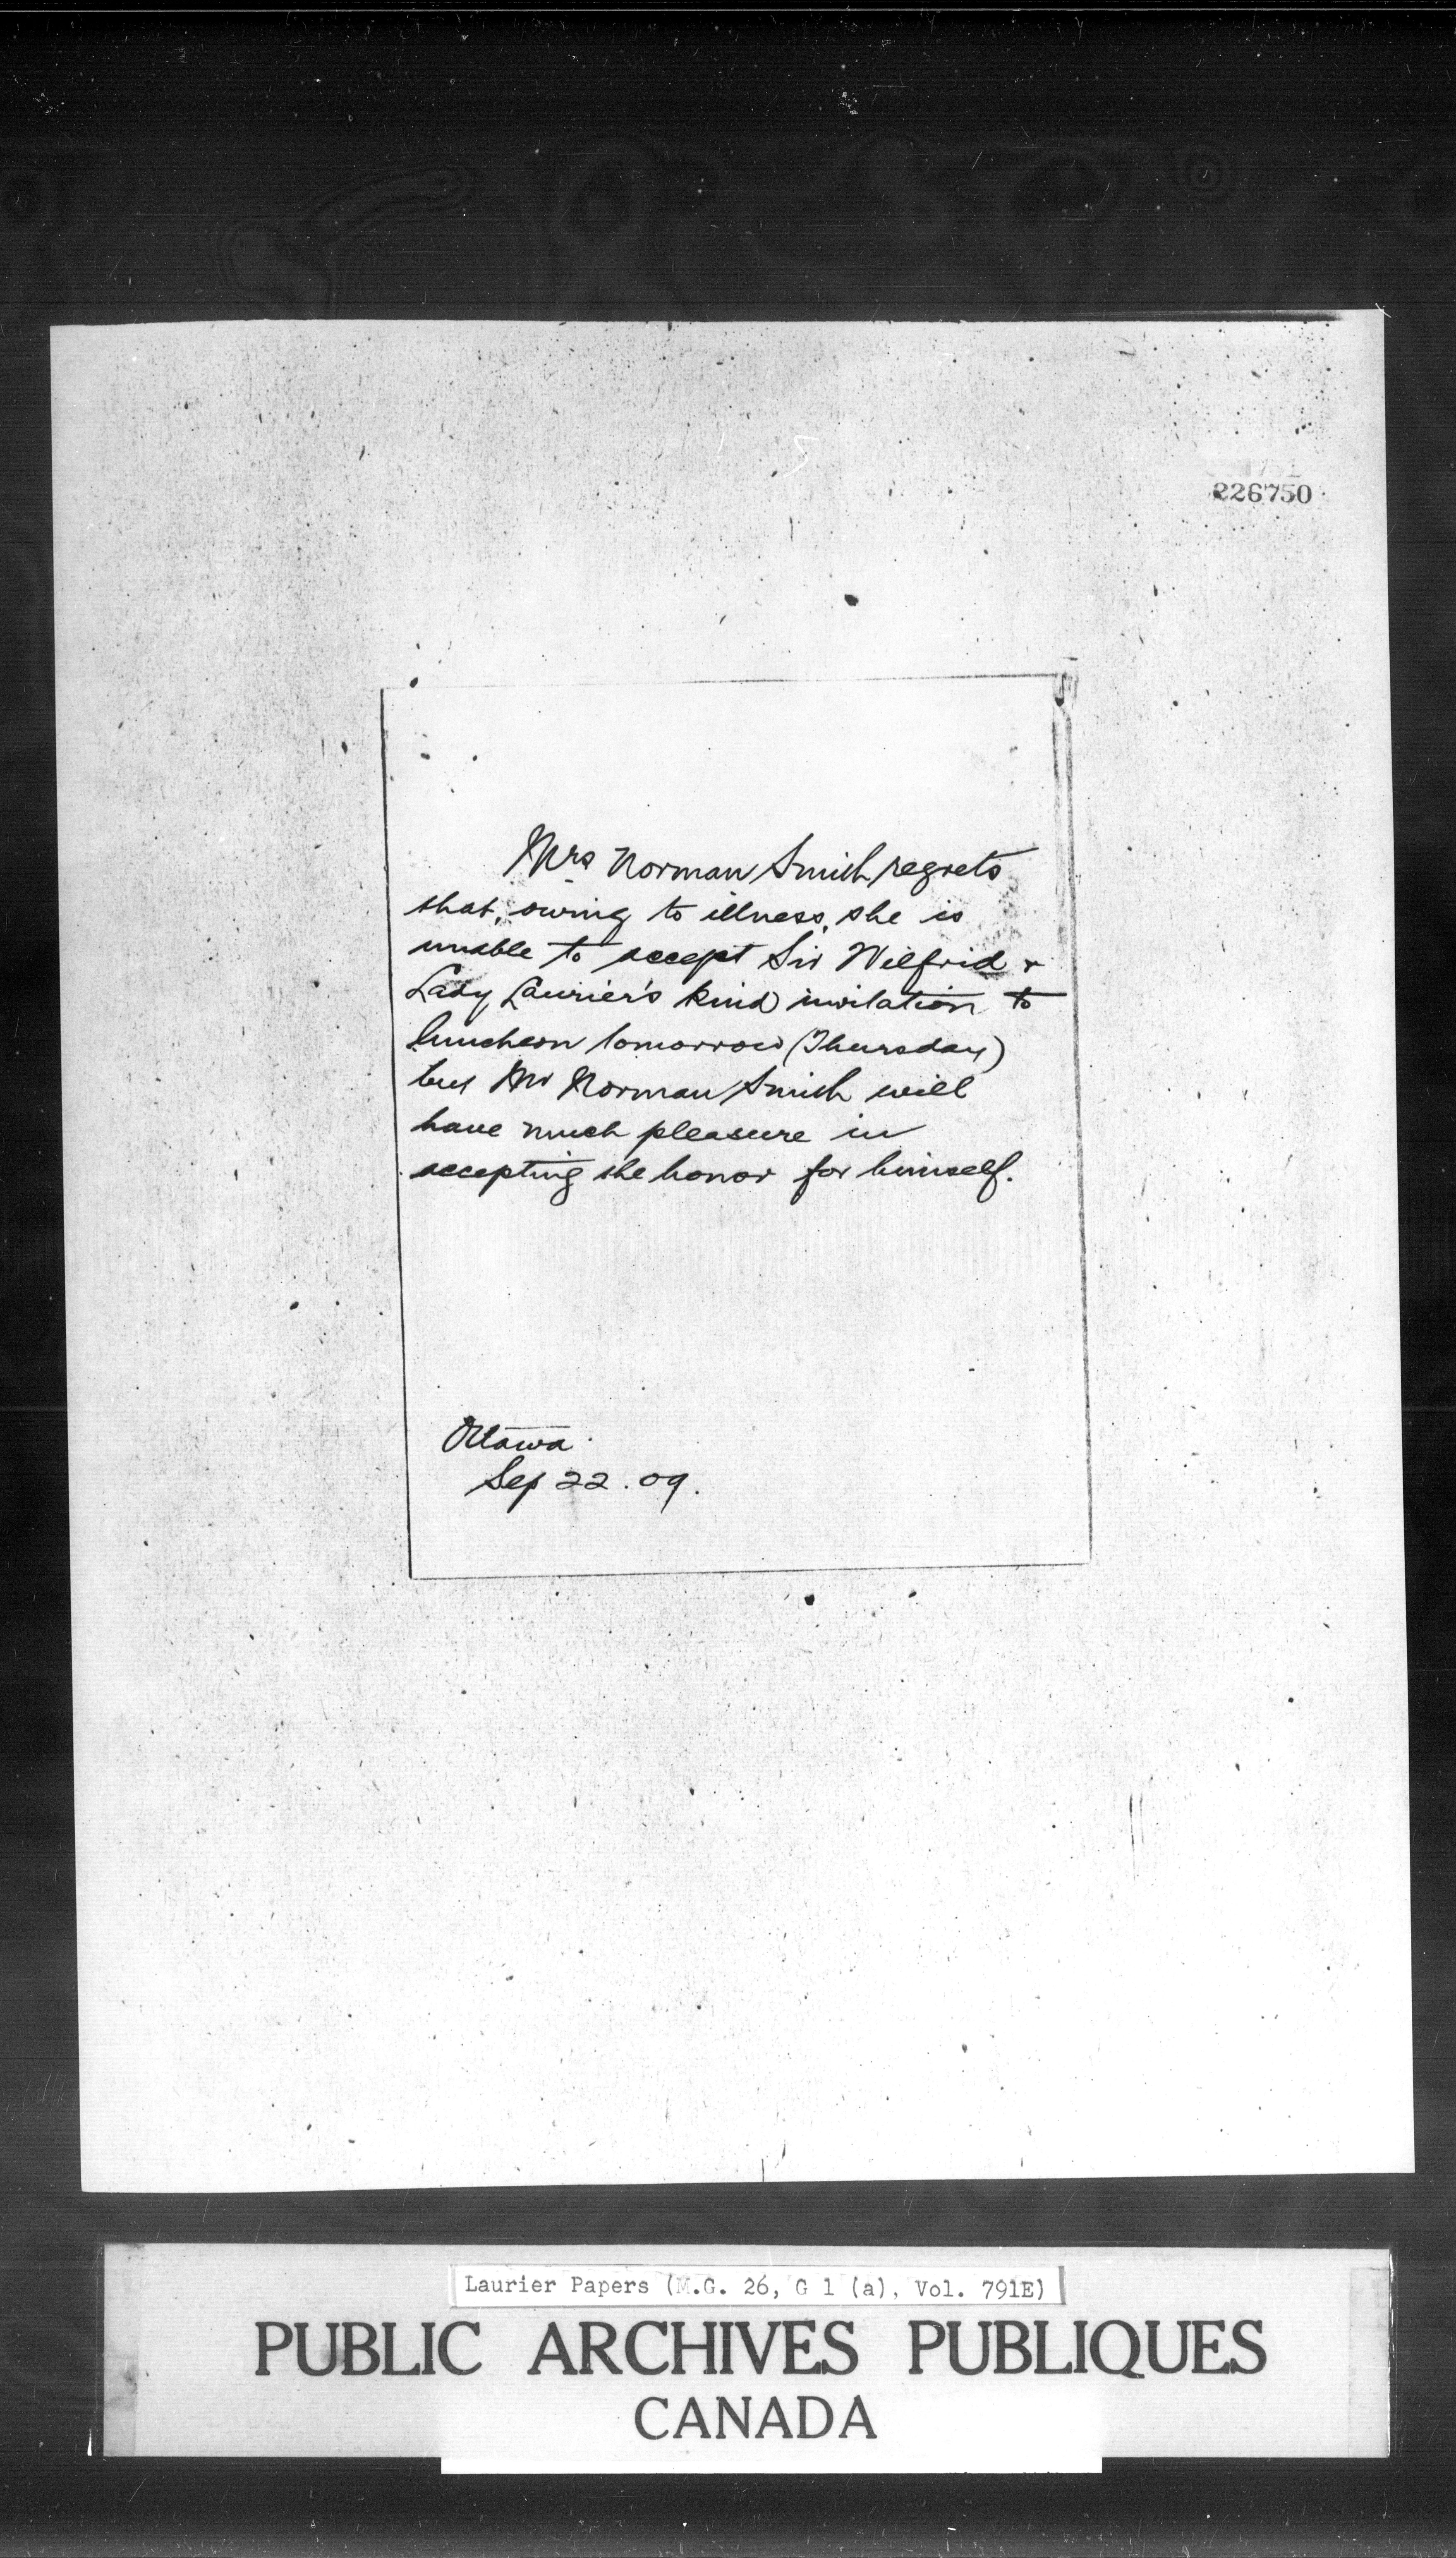 226750
Mrs Norman Smith regrets
that, owing to illness, she is
unable to accept Sir Wilfrid &
Lady Laurier's kind invitation to
luncheon tomorrow (Thursday)
but Mr Norman Smith will
have much pleasure in
accepting the honor for himself.
Ottawa
Sep 22. 09.
Laurier Papers (M.G. 26, G 1 (a), Vol. 791E)
PUBLIC ARCHIVES PUBLIQUES
CANADA